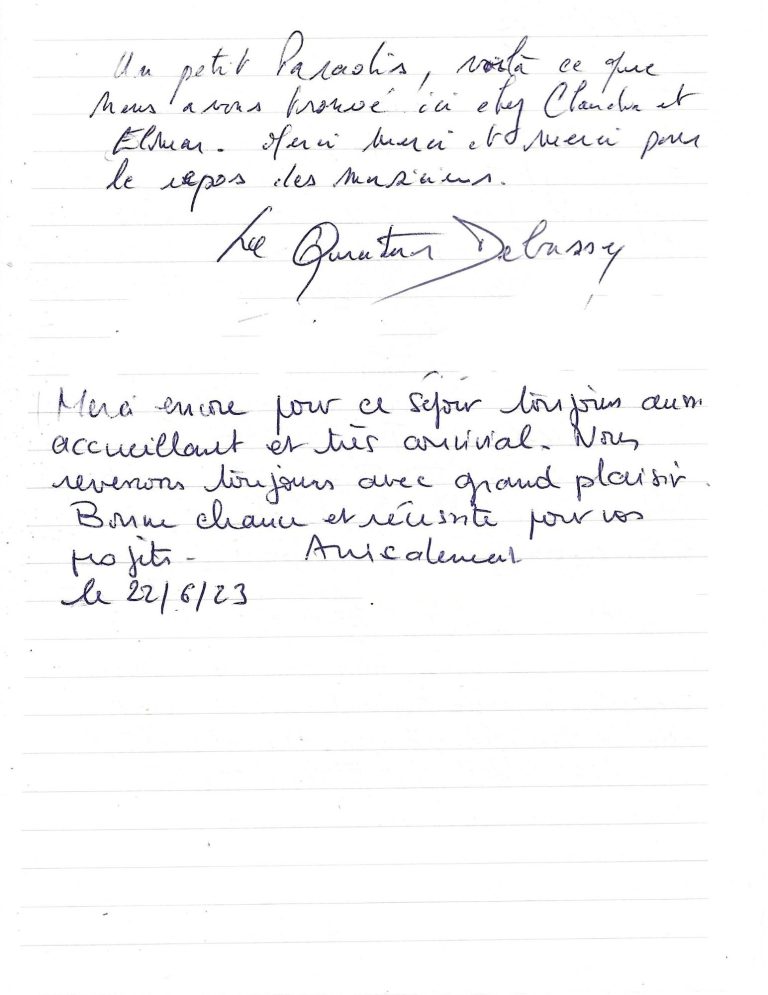 Un petit Paradis, voilà ce que
nous avons trouvé ici chez Claudia et
Elmar. Merci merci et merci pour
le repos des musiciens.
Le Quatuor Debussy
Merci encore pour ce séjour toujours aussi
accueillant et très convivial. Nous
revenons toujours avec grand plaisir.
Bonne chance et réussite pour vos
projets - Amicalement
le 22/6/23